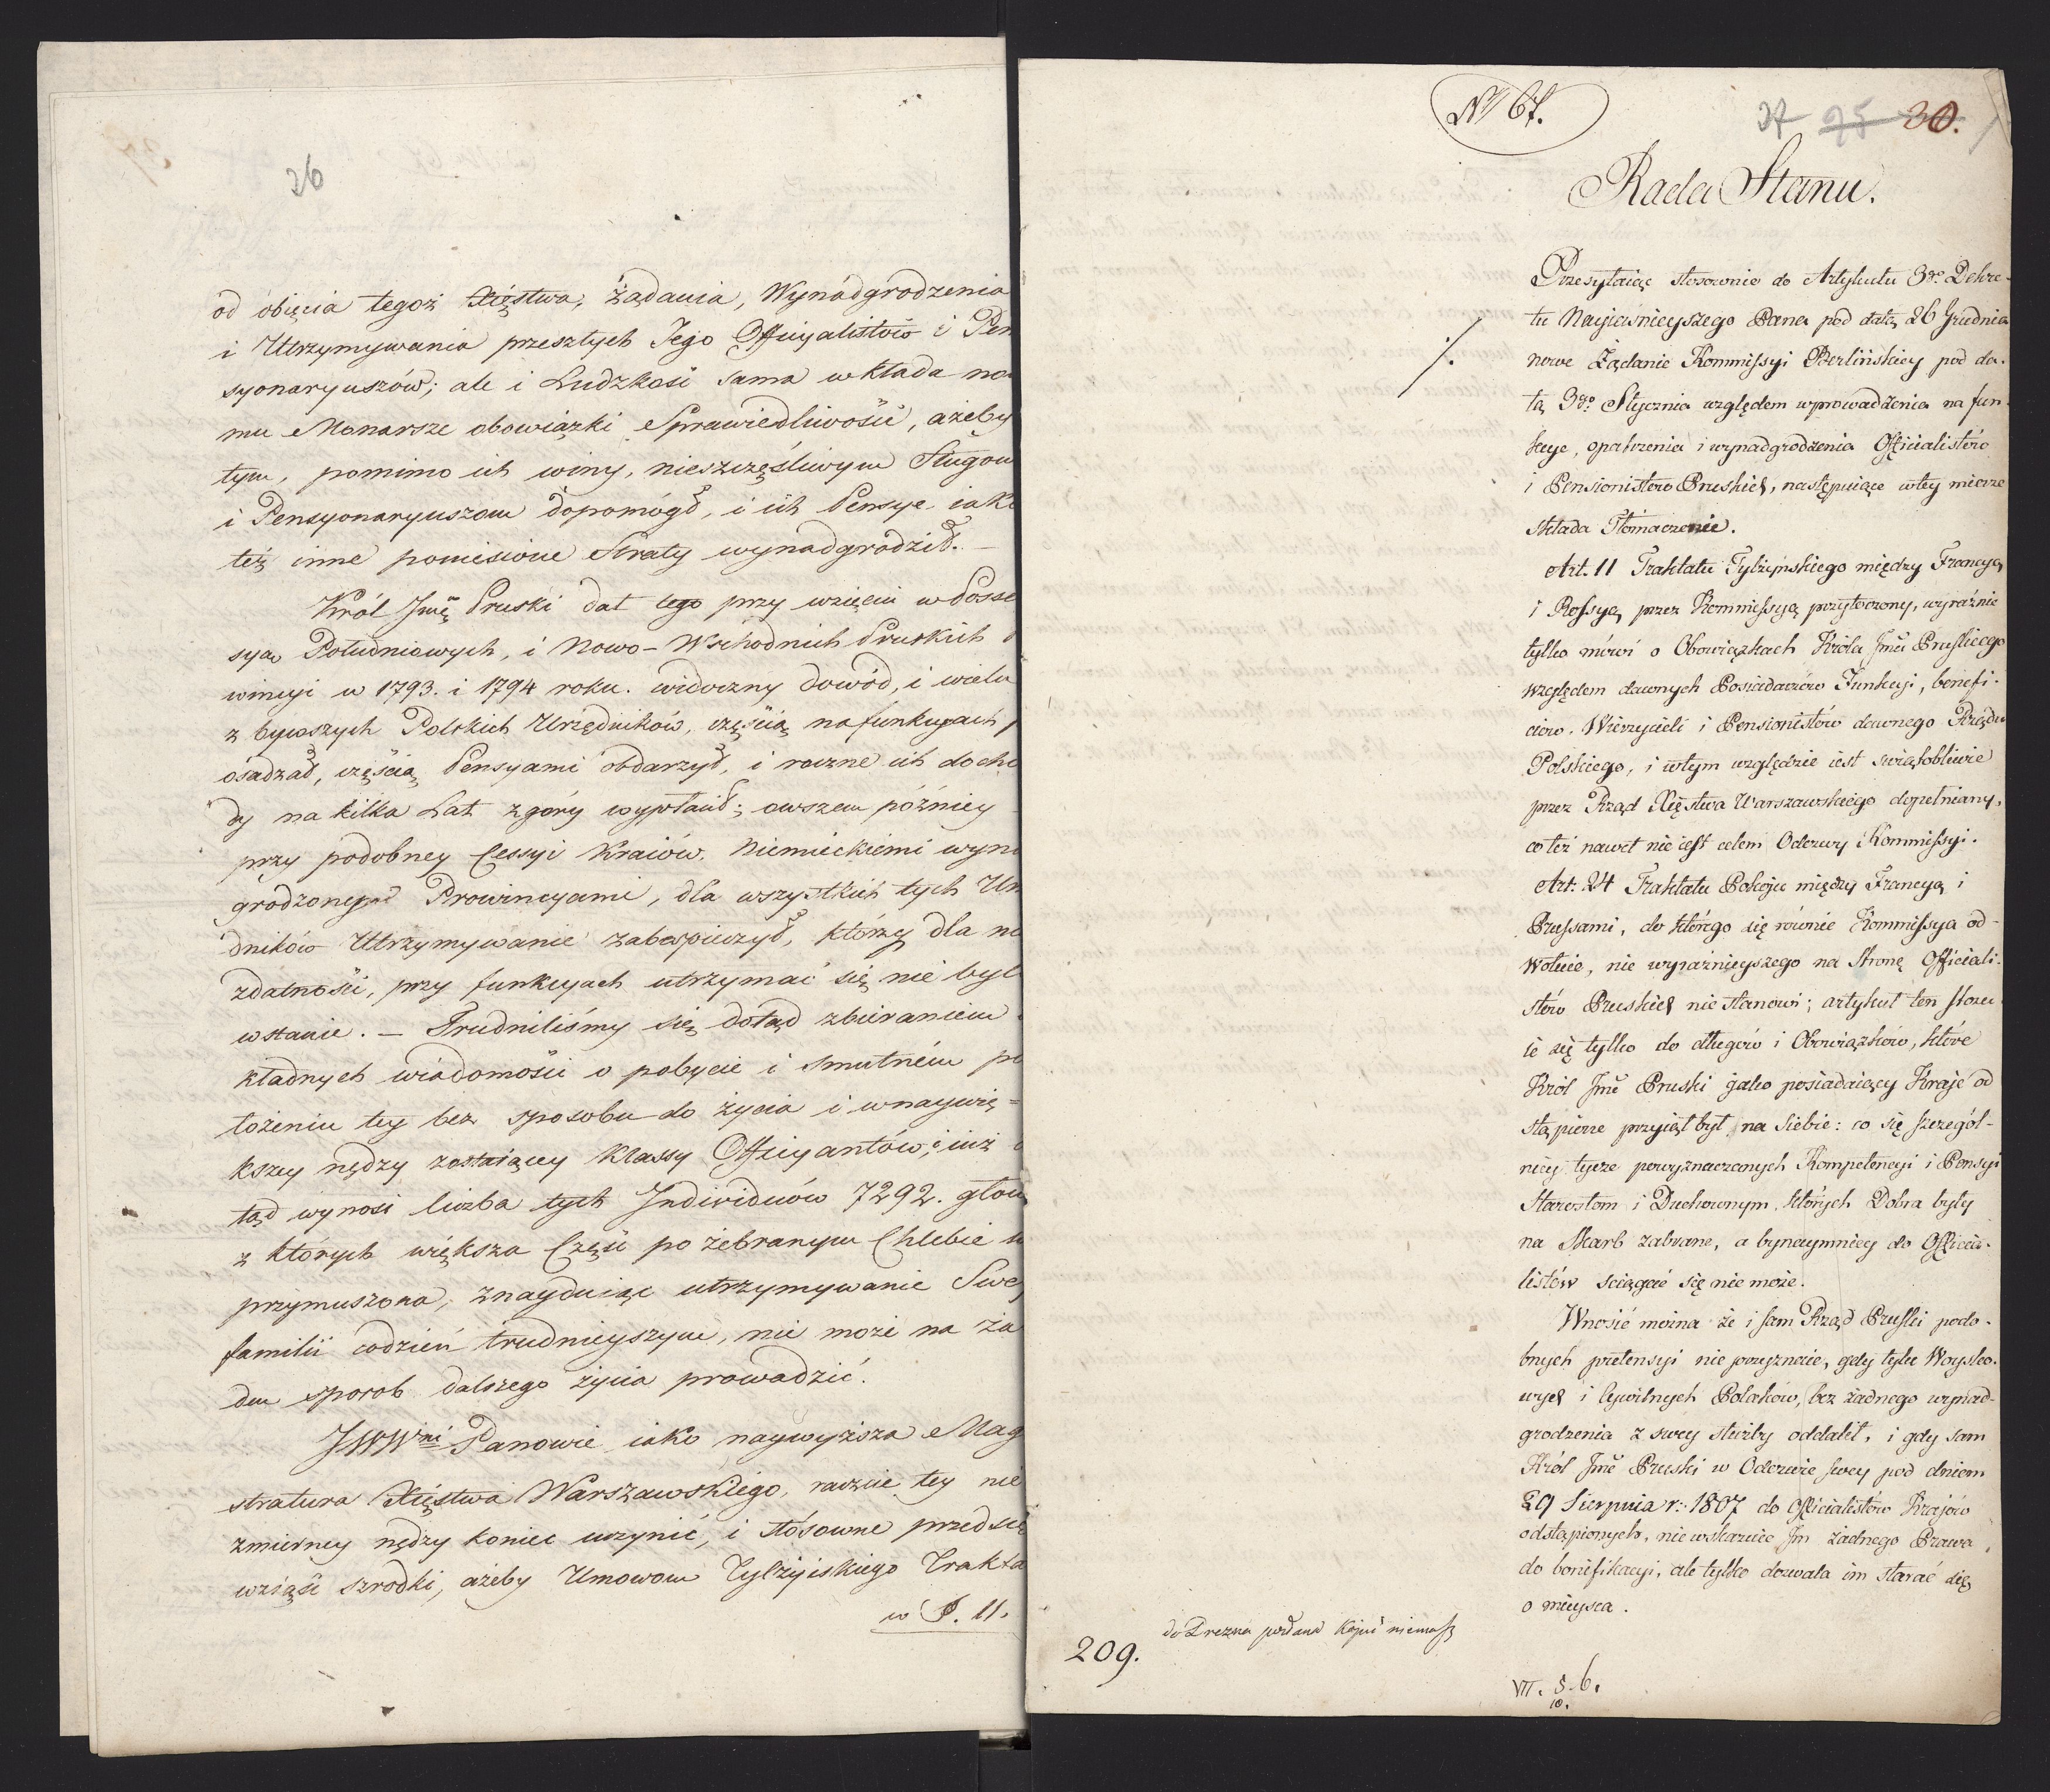 26
od obięcia tegoż Xięstwa, żądania, Wynadgrodzenia
i Utrzymywania przeszłych Jego Officyalistów i Pen
syonaryuszów; ale i Ludzkość sama wkłada no
mu Monarsze obowiązki Sprawiedliwości, ażeby
tym, pomimo ich winy, nieszczęśliwym Sługom
i Pensyonaryuszom dopomógł, i ich Pensye iako
też inne poniesione Straty wynadgrodził. –
Król Jmę Pruski dał tego przy wzięciu w Posse
syą Południowych, i Nowo-Wschodnich Pruskich
wincyi w 1793. i 1794 roku. widoczny dowód, i wielu
z bywszych Polskich Urzędników, częścią na funkcyach
osadzał, częścią Pensyami obdarzył, i roczne ich docho
dy na kilka Lat z góry wypłacił; owszem późniey
przy podobney Cessyi Kraiów, Niemieckiemi wyna
grodzoney Prowincyami, dla wszystkich tych Urz
dników Utrzymywanie zabespieczył, którzy dla nie
zdatności, przy funkcyach utrzymać się nie byli
wstanie. – Trudniliśmy się dotąd zbieraniem
kładnych wiadomości o pobycie i smutném po
łożeniu tey bez sposobu do życia i w naywię=
kszey nędzy zostaiącey Klassy Officyantów; iuż
tąd wynosi liczba tych Individuów 7292. głów
z których większa Część po żebranym Chlebie
przymuszona, znayduiąc utrzymywanie Swey
familii codzień trudnieyszym, nie może na ża
den sposob dalszego życia prowadzić.
JWWni Panowie iako naywyższa Mag
stratura Xięstwa Warszawskiego, raczcie tey nie
zmierney nędzy koniec uczynić, i stósowne przedsię
wziąść szrodki, ażeby Umowom Tylżyiskiego Trakta
w §. 11.
№ 67.
27 25 30.
Rada Stanu.
Przesyłaiąc stosownie do Artykułu 3go Dekre-
tu Nayiaśnieyszego Pana pod datą 26 Grudnia
nowe Żądanie Kommissyi Berlińskiey pod da-
tą 3go Stycznia względem wprowadzenia na fun-
kcye, opatrzenia i wynadgrodzenia Officialistów
i Pensionistów Pruskich, następuiące w tey mierze
składa Tłómaczenie.
Art. 11 Traktatu Tylżyńskiego między Francyą
i Rossyą przez Kommissyą przytoczony, wyraźnie
tylko mówi o Obowiązkach Króla Jmci Pruskiego
względem dawnych Posiadaczów Funkcyi, benefi-
ciów, Wierzycieli i Pensionistów dawnego Rządu
Polskiego, i w tym względzie iest świątobliwie
przez Rząd Xięstwa Warszawskiego dopełniany,
co też nawet nie iest celem Odezwy Kommissyi.
Art: 24 Traktatu Pokoju między Francyą i
Prussami, do którego się równie Kommissya od-
wołuie, nic wyraźnieyszego na Stronę Officiali-
stów Pruskich nie stanowi; artykuł ten stosu-
ie się tylko do długów i Obowiązków, które
Król Jmć Pruski jako posiadaiący Kraje od
stąpione przyiął był na siebie: co się szczegól-
niey tycze powyznaczonych Kompetencyi i Pensyi
Starostom i Duchownym, których Dobra były
na Skarb zabrane, a bynaymniey do Officia-
listów sciągać się nie może.
Wnosić można że i sam Rząd Pruski podo-
bnych pretensyi nie przyznaie, gdy tylu Woysko-
wych i Cywilnych Polaków, bez żadnego wynad-
grodzenia z swey służby oddalił, i gdy sam
Król Jmć Pruski w Odezwie swey pod dniem
29 Sierpnia r: 1807 do Officialistów Krajów
odstąpionych, nie wskazuie Im żadnego Prawa
do bonifikacyi, ale tylko dozwala im starać się
o mieysca.
do Drezna podana Kopii niemasz
209.
VII. 5. 6.
10.